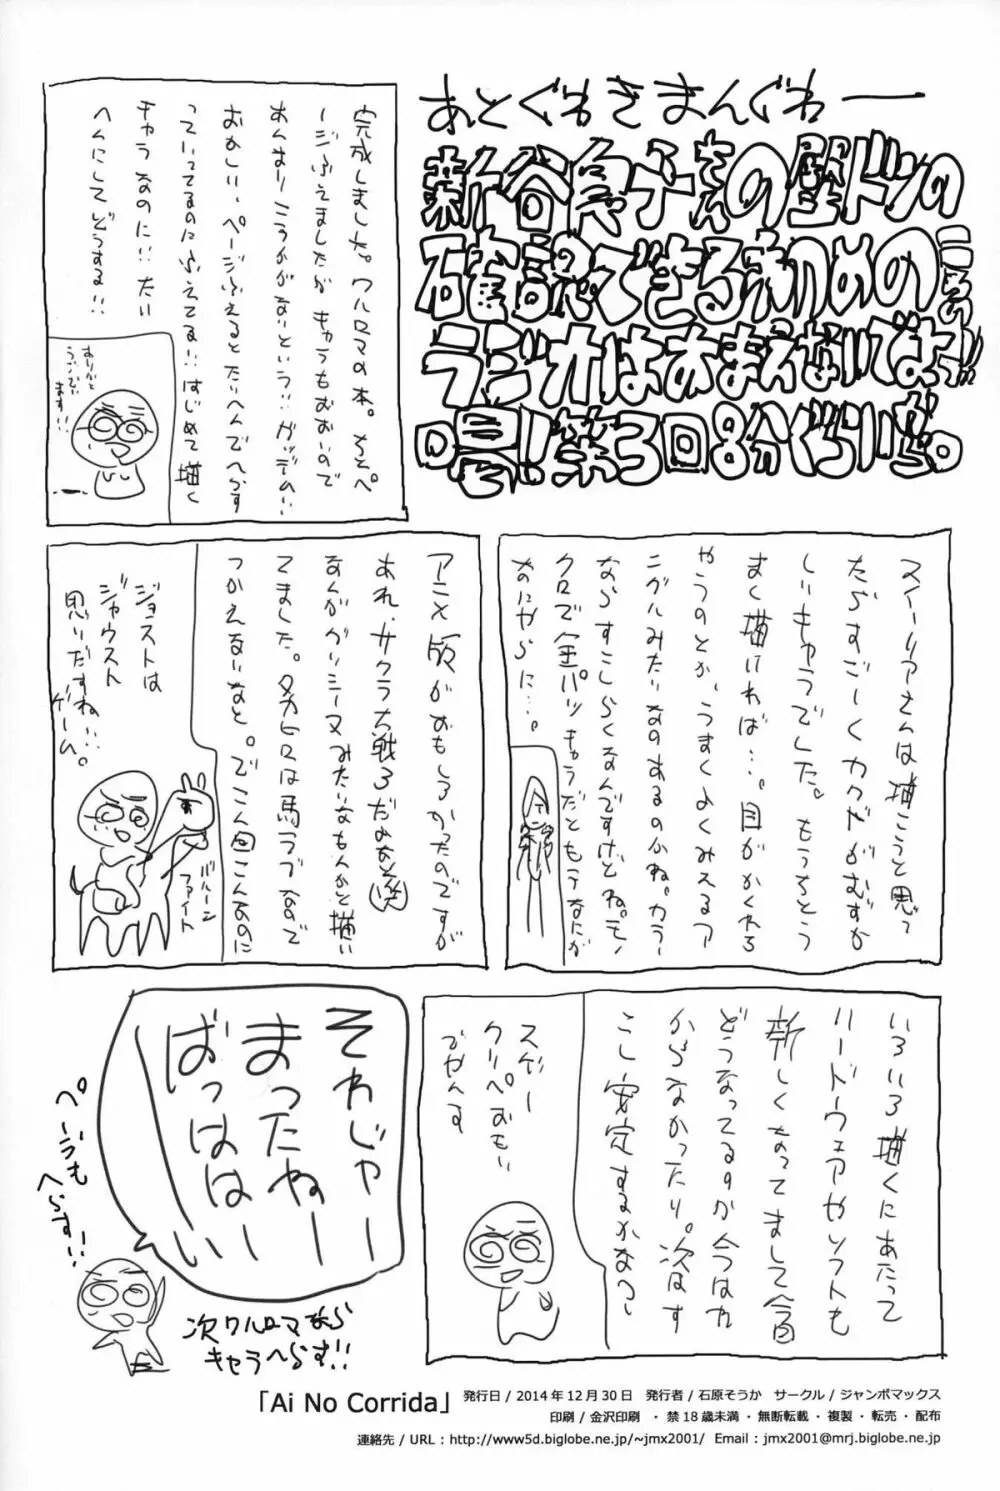 あとぐわきまんぐわー
新谷良子さんの壁ドンの
確認できる初めの
ラジオはあまえないでよっ!!
喝!!第3回8分ぐらいから。
完成しました。ワルロマの本。
ージふえましたがキャラもおおいので
おかしい、ページふえるとたいへんでへらす
っていってるのにふえてる!!はじめて描く
キャラなのに!!たい
へんにしてどうする!!
ありがと
うござい
ます!!
スイーリアさんは描こうと思っ
たらすごーくカクゴがむずか
しいキャラでした。もうちとう
まく描ければ…。目がかくれる
やうのとか、うまくよくみえるア
ングルみたいなのあるのかね。カラー
ならすこしらくなんですけどね。モノ
クロで金パツキャラだともうなにが
なにやらに…。
アニメ版がおもしろかったのですが
あれ、サクラ大戦3だよな(笑)
なんかグリシーヌみたいなもんかと描い
てました。タカヒロは馬ラブなので
つかえるなと。でこん回こんなのに
ジョストは
ジャウスト
思いだすね…
ゲーム。
バルーン
ファイト
いろいろ描くにあたって
ハードウェアやソフトも
新しくなってまして今回
どうなってるのか今はわ
からなかったり。次はす
こし安定するかなっ
スゲー
クリペおもい
でやんす
それじゃー
まったねー
ばっはは
ーい
ページも
へらす!!
次ワルロマなら
キャラへらす!!
「Ai No Corrida」 発行日 / 2014 年 12 月 30 日 発行者 / 石原そうか サークル / ジャンボマックス
印刷 / 金沢印刷 ・ 禁 18 歳未満 ・ 無断転載 ・ 複製 ・ 転売 ・ 配布
連絡先 / URL : http://www5d.biglobe.ne.jp/~jmx2001/ Email : jmx2001@mrj.biglobe.ne.jp